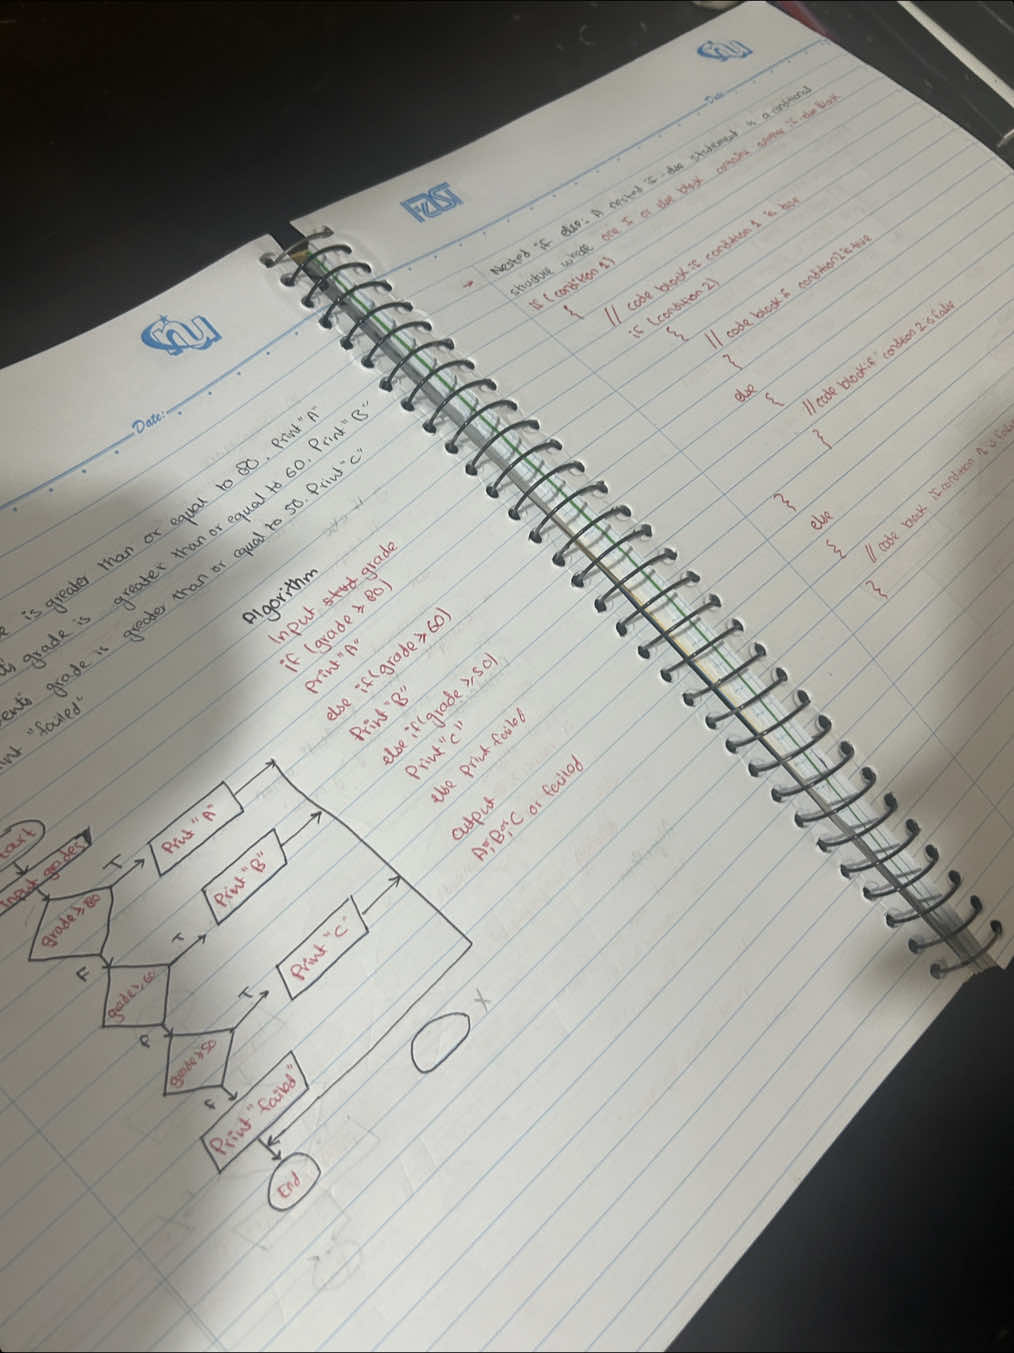 Date:
is greater than or equal to 80. Print "A"
grade is greater than or equal to 60. Print "B"
grade is greater than or equal to 50. Print "C"
"failed"
Algorithm
Input grade
if (grade ≥ 80)
Print "A"
else if (grade ≥ 60)
Print "B"
else if (grade ≥ 50)
Print "C"
else Print failed
output
A, B, C or failed
Input grades
grade ≥ 80
T
Print "A"
F
grade ≥ 60
T
Print "B"
F
grade ≥ 50
T
Print "C"
F
Print "failed"
End
X
FAST
Date:
Nested if else: A nested if-else statement is a conditional
structure where one if or else block contains another if else block
if (condition 1)
{ // code block if condition 1 is true
if (condition 2)
{ // code block if condition 2 is true
}
else
{ // code block if condition 2 is false
}
}
else
{ // code block if condition 1 is
}